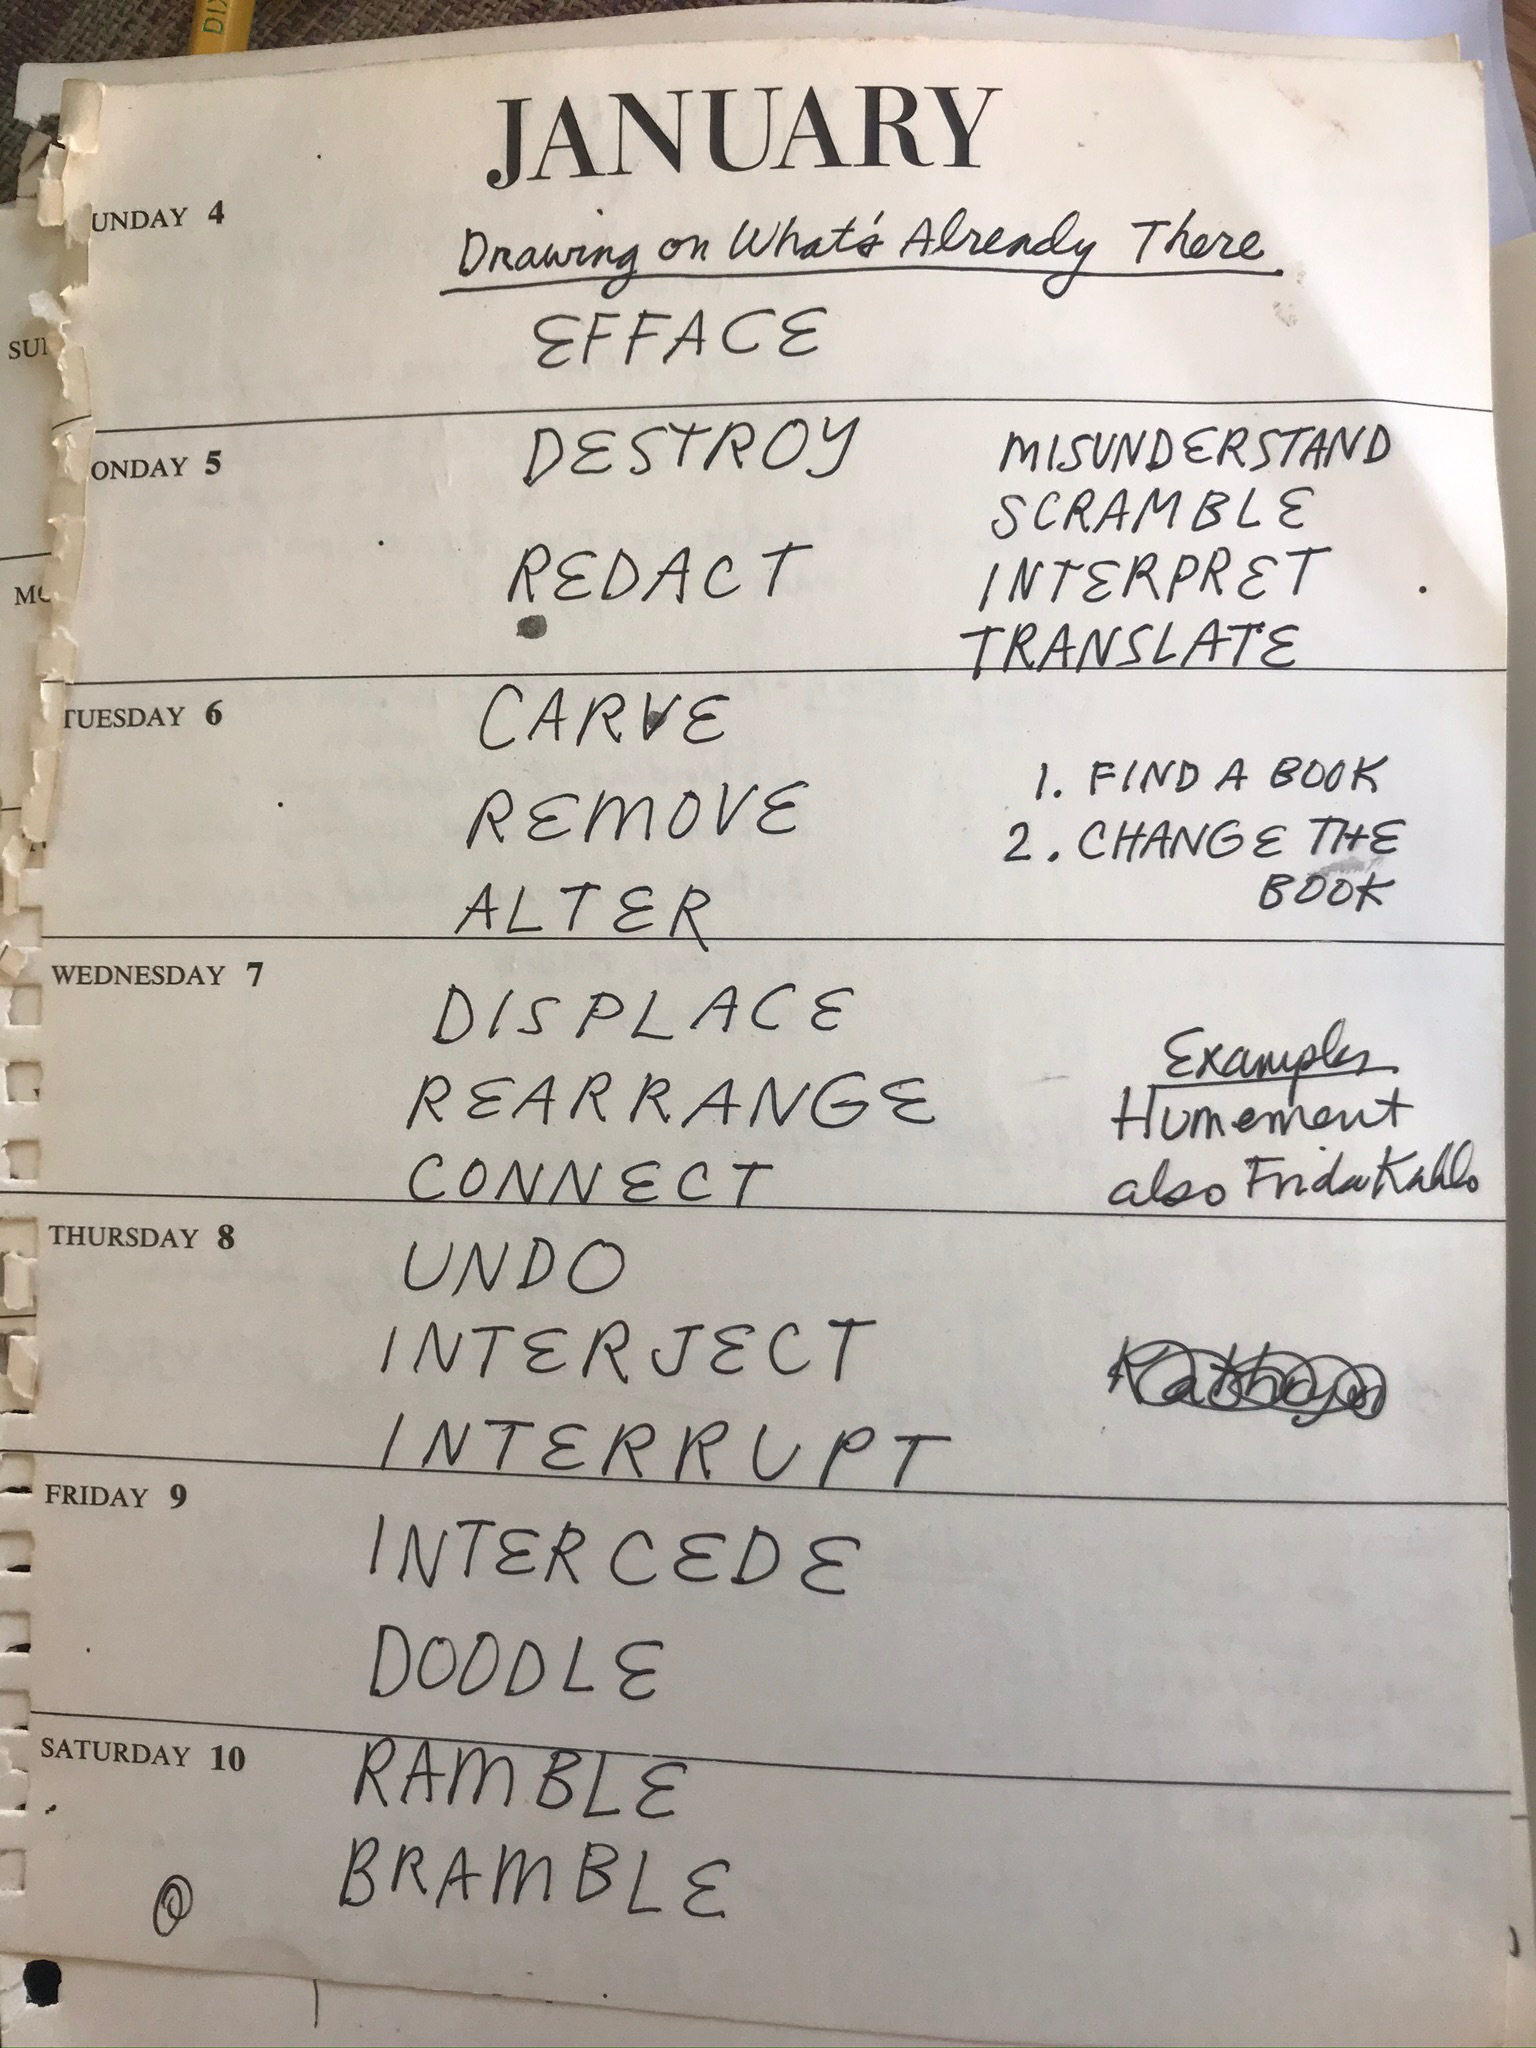 DIX
JANUARY
UNDAY 4
Drawing on What's Already There
EFFACE
SUN
ONDAY 5
DESTROY
REDACT
MISUNDERSTAND
SCRAMBLE
INTERPRET
TRANSLATE
MO
TUESDAY 6
CARVE
REMOVE
ALTER
1. FIND A BOOK
2. CHANGE THE
BOOK
WEDNESDAY 7
DISPLACE
REARRANGE
CONNECT
Examples
Humement
also Frida Kahlo
THURSDAY 8
UNDO
INTERJECT
INTERRUPT
FRIDAY 9
INTERCEDE
DOODLE
SATURDAY 10
RAMBLE
BRAMBLE